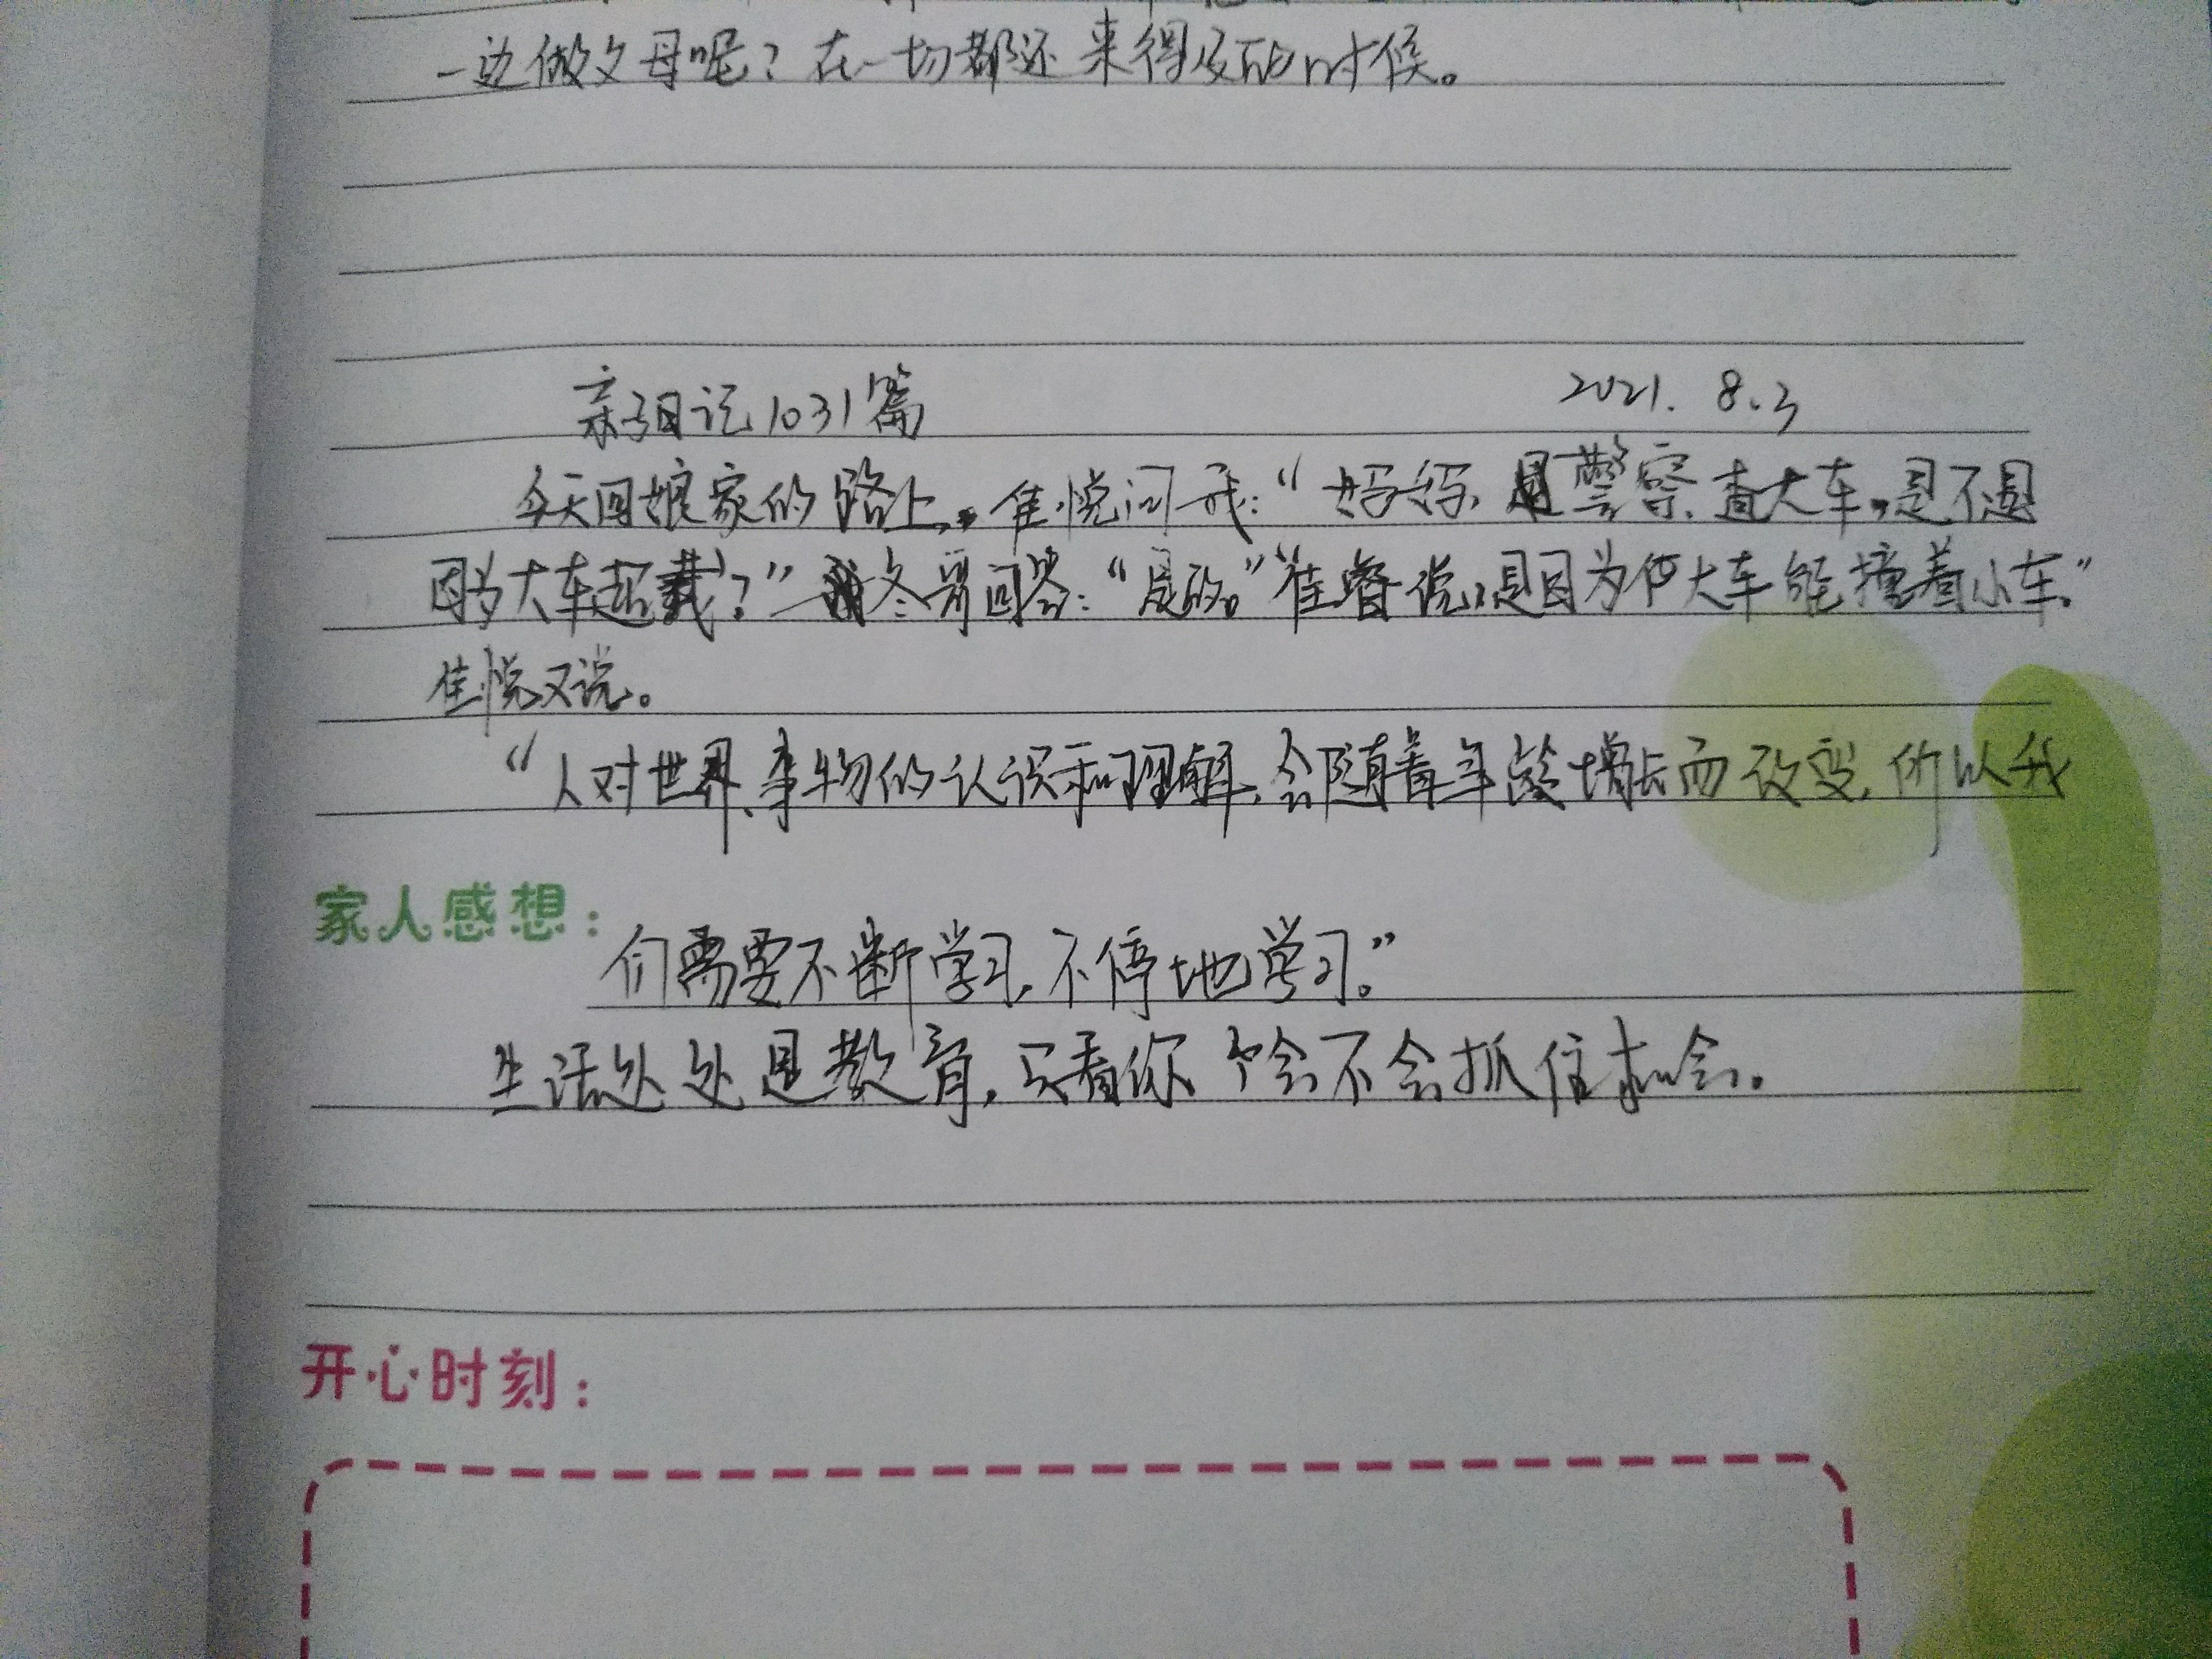 一边做父母呢？在一切都还来得及的时候。
亲子日记1031篇 2021.8.3
今天回娘家的路上，佳悦问我：“妈妈，是警察查大车，是不是
因为大车超载？”冬哥回答：“是的。”“佳睿说，是因为怕大车能撞着小车。”
佳悦又说。
“人对世界、事物的认识和理解，会随着年龄增长而改变，所以我
家人感想：
们需要不断学习，不停地学习。”
生活处处是教育，只看你会不会抓住机会。
开心时刻：